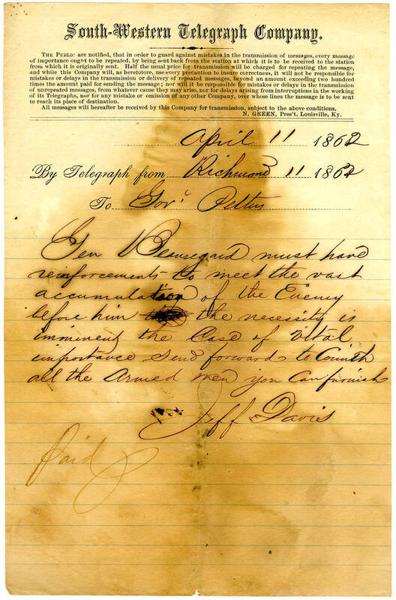 South-Western Telegraph Company.
The Public are notified, that in order to guard against mistakes in the transmission of messages, every message
of importance ought to be repeated, by being sent back from the station at which it is to be received to the station
from which it is originally sent. Half the usual price for transmission will be charged for repeating the message,
and while this Company will, as heretofore, use every precaution to insure correctness, it will not be responsible for
mistakes or delays in the transmission or delivery of repeated messages, beyond an amount exceeding two hundred
times the amount paid for sending the message; nor will it be responsible for mistakes or delays in the transmission
of unrepeated messages, from whatever cause they may arise, nor for delays arising from interruptions in the working
of its Telegraphs, nor for any mistake or omission of any other Company, over whose lines the message is to be sent
to reach its place of destination.
All messages will hereafter be received by this Company for transmission, subject to the above conditions.
N. GREEN, Pres't, Louisville, Ky.
April 11 1862
By Telegraph from Richmond 11 1862
To Govr Pettus
Gen Beauregard must have
reinforcements to meet the vast
accumulation of the Enemy
before him the necessity is
imminent the Case of vital
importance send forward to Corinth
all the Armed men you can furnish
Jeff Davis
Paid